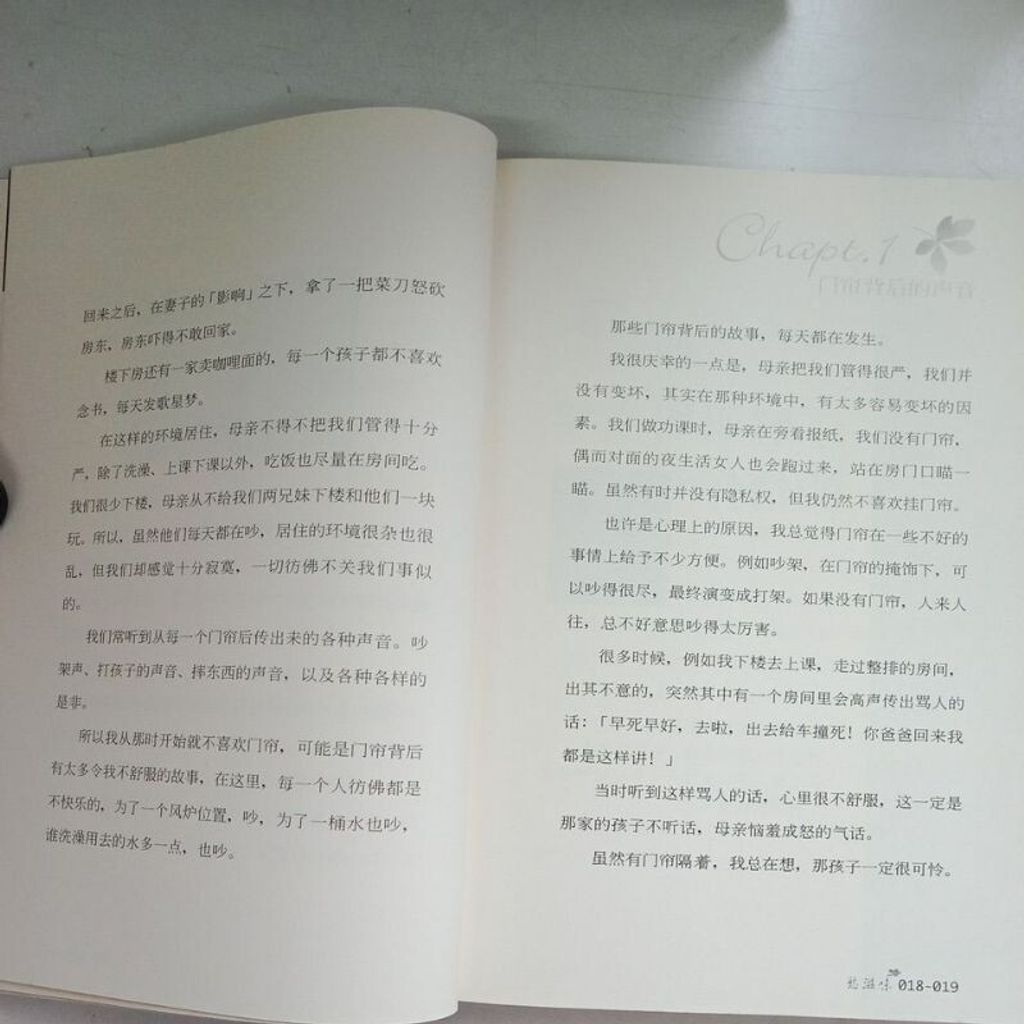 回来之后，在妻子的「影响」之下，拿了一把菜刀怒砍
房东，房东吓得不敢回家。
楼下房还有一家卖咖哩面的，每一个孩子都不喜欢
念书，每天发歌星梦。
在这样的环境居住，母亲不得不把我们管得十分
严，除了洗澡、上课下课以外，吃饭也尽量在房间吃。
我们很少下楼，母亲从不给我们两兄妹下楼和他们一块
玩。所以，虽然他们每天都在吵，居住的环境很杂也很
乱，但我们却感觉十分寂寞，一切彷佛不关我们事似
的。
我们常听到从每一个门帘后传出来的各种声音。吵
架声、打孩子的声音、摔东西的声音，以及各种各样的
是非。
所以我从那时开始就不喜欢门帘，可能是门帘背后
有太多令我不舒服的故事，在这里，每一个人彷佛都是
不快乐的，为了一个风炉位置，吵，为了一桶水也吵，
谁洗澡用去的水多一点，也吵。
Chapt.1
门帘背后的声音
那些门帘背后的故事，每天都在发生。
我很庆幸的一点是，母亲把我们管得很严，我们并
没有变坏，其实在那种环境中，有太多容易变坏的因
素。我们做功课时，母亲在旁看报纸，我们没有门帘，
偶而对面的夜生活女人也会跑过来，站在房门口瞄一
瞄。虽然有时并没有隐私权，但我仍然不喜欢挂门帘。
也许是心理上的原因，我总觉得门帘在一些不好的
事情上给予不少方便。例如吵架，在门帘的掩饰下，可
以吵得很尽，最终演变成打架。如果没有门帘，人来人
往，总不好意思吵得太厉害。
很多时候，例如我下楼去上课，走过整排的房间，
出其不意的，突然其中有一个房间里会高声传出骂人的
话：「早死早好，去啦，出去给车撞死！你爸爸回来我
都是这样讲！」
当时听到这样骂人的话，心里很不舒服，这一定是
那家的孩子不听话，母亲恼羞成怒的气话。
虽然有门帘隔着，我总在想，那孩子一定很可怜。
滋味 018-019